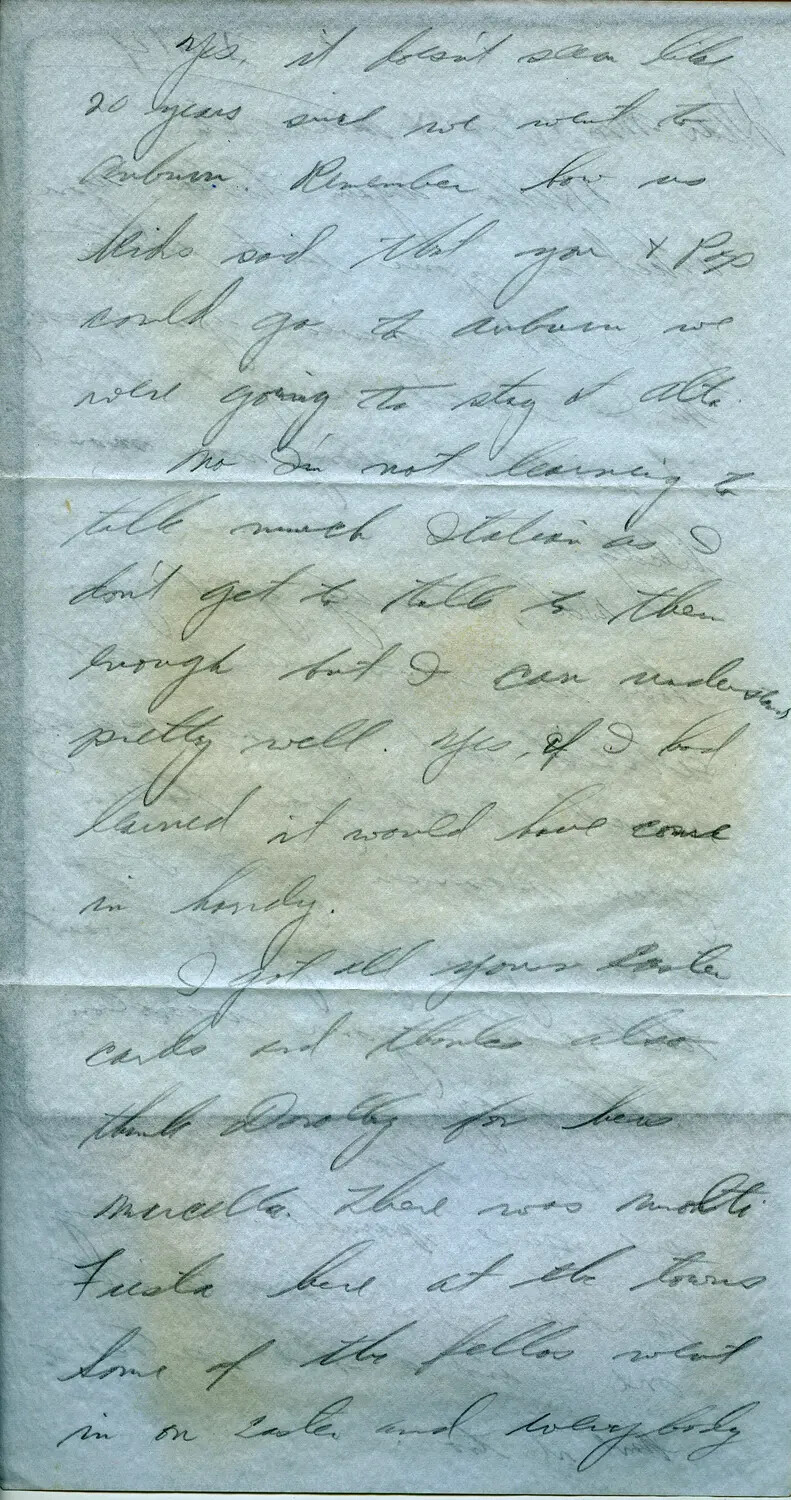 Yes, it doesn't seem like
20 years since we went to
Auburn. Remember how us
kids said that you & Pop
could go to Auburn we
were going to stay at Alta.
No I'm not learning to
talk much Italian as I
don't get to talk to them
enough but I can understand
pretty well. Yes, if I had
learned it would have come
in handy.
I got all your Easter
cards and thanks also
thank Dorothy for hers
Marcella. There was molti
Fiesta here at the towns
Some of the fellos went
in on Easter and everybody